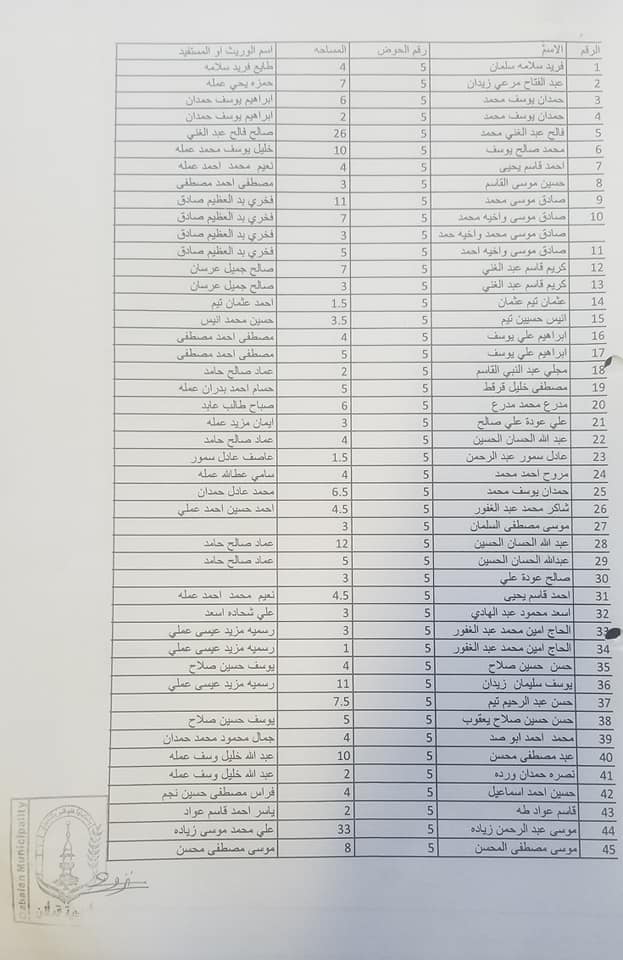 الرقم الاسم رقم الحوض المساحه اسم الوريث او المستفيد
1 فريد سلامه سلمان 5 4 طايع فريد سلامه
2 عبد الفتاح مرعي زيدان 5 7 حمزه يحي عمله
3 حمدان يوسف محمد 5 6 ابراهيم يوسف حمدان
4 حمدان يوسف محمد 5 2 ابراهيم يوسف حمدان
5 فالح عبد الغني محمد 5 26 صالح فالح عبد الغني
6 محمد صالح يوسف 5 10 خليل يوسف محمد عمله
7 احمد قاسم يحيى 5 4 نعيم محمد احمد عمله
8 حسين موسى القاسم 5 3 مصطفى احمد مصطفى
9 صادق موسى محمد 5 11 فخري بد العظيم صادق
10 صادق موسى واخيه محمد 5 7 فخري بد العظيم صادق
صادق موسى محمد واخيه حمد 5 3 فخري بد العظيم صادق
11 صادق موسى واخيه احمد 5 5 فخري بد العظيم صادق
12 كريم قاسم عبد الغني 5 7 صالح جميل عرسان
13 كريم قاسم عبد الغني 5 3 صالح جميل عرسان
14 عثمان تيم عثمان 5 1.5 احمد عثمان تيم
15 انيس حسيين تيم 5 3.5 حسين محمد انيس
16 ابراهيم علي يوسف 5 4 مصطفى احمد مصطفى
17 ابراهيم علي يوسف 5 5 مصطفى احمد مصطفى
18 مجلي عبد النبي القاسم 5 2 عماد صالح حامد
19 مصطفى خليل قرقط 5 5 حسام احمد بدران عمله
20 مدرع محمد مدرع 5 6 صباح طالب عابد
21 علي عودة علي صالح 5 3 ايمان مزيد عمله
22 عبد الله الحسان الحسين 5 4 عماد صالح حامد
23 عادل سمور عبد الرحمن 5 1.5 عاصف عادل سمور
24 مروح احمد محمد 5 4 سامي عطالله عمله
25 حمدان يوسف محمد 5 6.5 محمد عادل حمدان
26 شاكر محمد عبد الغفور 5 4.5 احمد حسين احمد عملي
27 موسى مصطفى السلمان 5 3
28 عبد الله الحسان الحسين 5 12 عماد صالح حامد
29 عبدالله الحسان الحسين 5 5 عماد صالح حامد
30 صالح عودة علي 5 3
31 احمد قاسم يحيى 5 4.5 نعيم محمد احمد عمله
32 اسعد محمود عبد الهادي 5 3 علي شحاده اسعد
33 الحاج امين محمد عبد الغفور 5 3 رسميه مزيد عيسى عملي
34 الحاج امين محمد عبد الغفور 5 1 رسميه مزيد عيسى عملي
35 حسن حسين صلاح 5 4 يوسف حسين صلاح
36 يوسف سليمان زيدان 5 11 رسميه مزيد عيسى عملي
37 حسن عبد الرحيم تيم 5 7.5
38 حسن حسين صلاح يعقوب 5 5 يوسف حسين صلاح
39 محمد احمد ابو صد 5 4 جمال محمود محمد حمدان
40 عبد مصطفى محسن 5 10 عبد الله خليل وسف عمله
41 نصره حمدان ورده 5 2 عبد الله خليل وسف عمله
42 حسين احمد اسماعيل 5 4 فراس مصطفى حسين نجم
43 قاسم عواد طه 5 2 ياسر احمد قاسم عواد
44 موسى عبد الرحمن زياده 5 33 علي محمد موسى زياده
45 موسى مصطفى المحسن 5 8 موسى مصطفى محسن
Qabalan Municipality